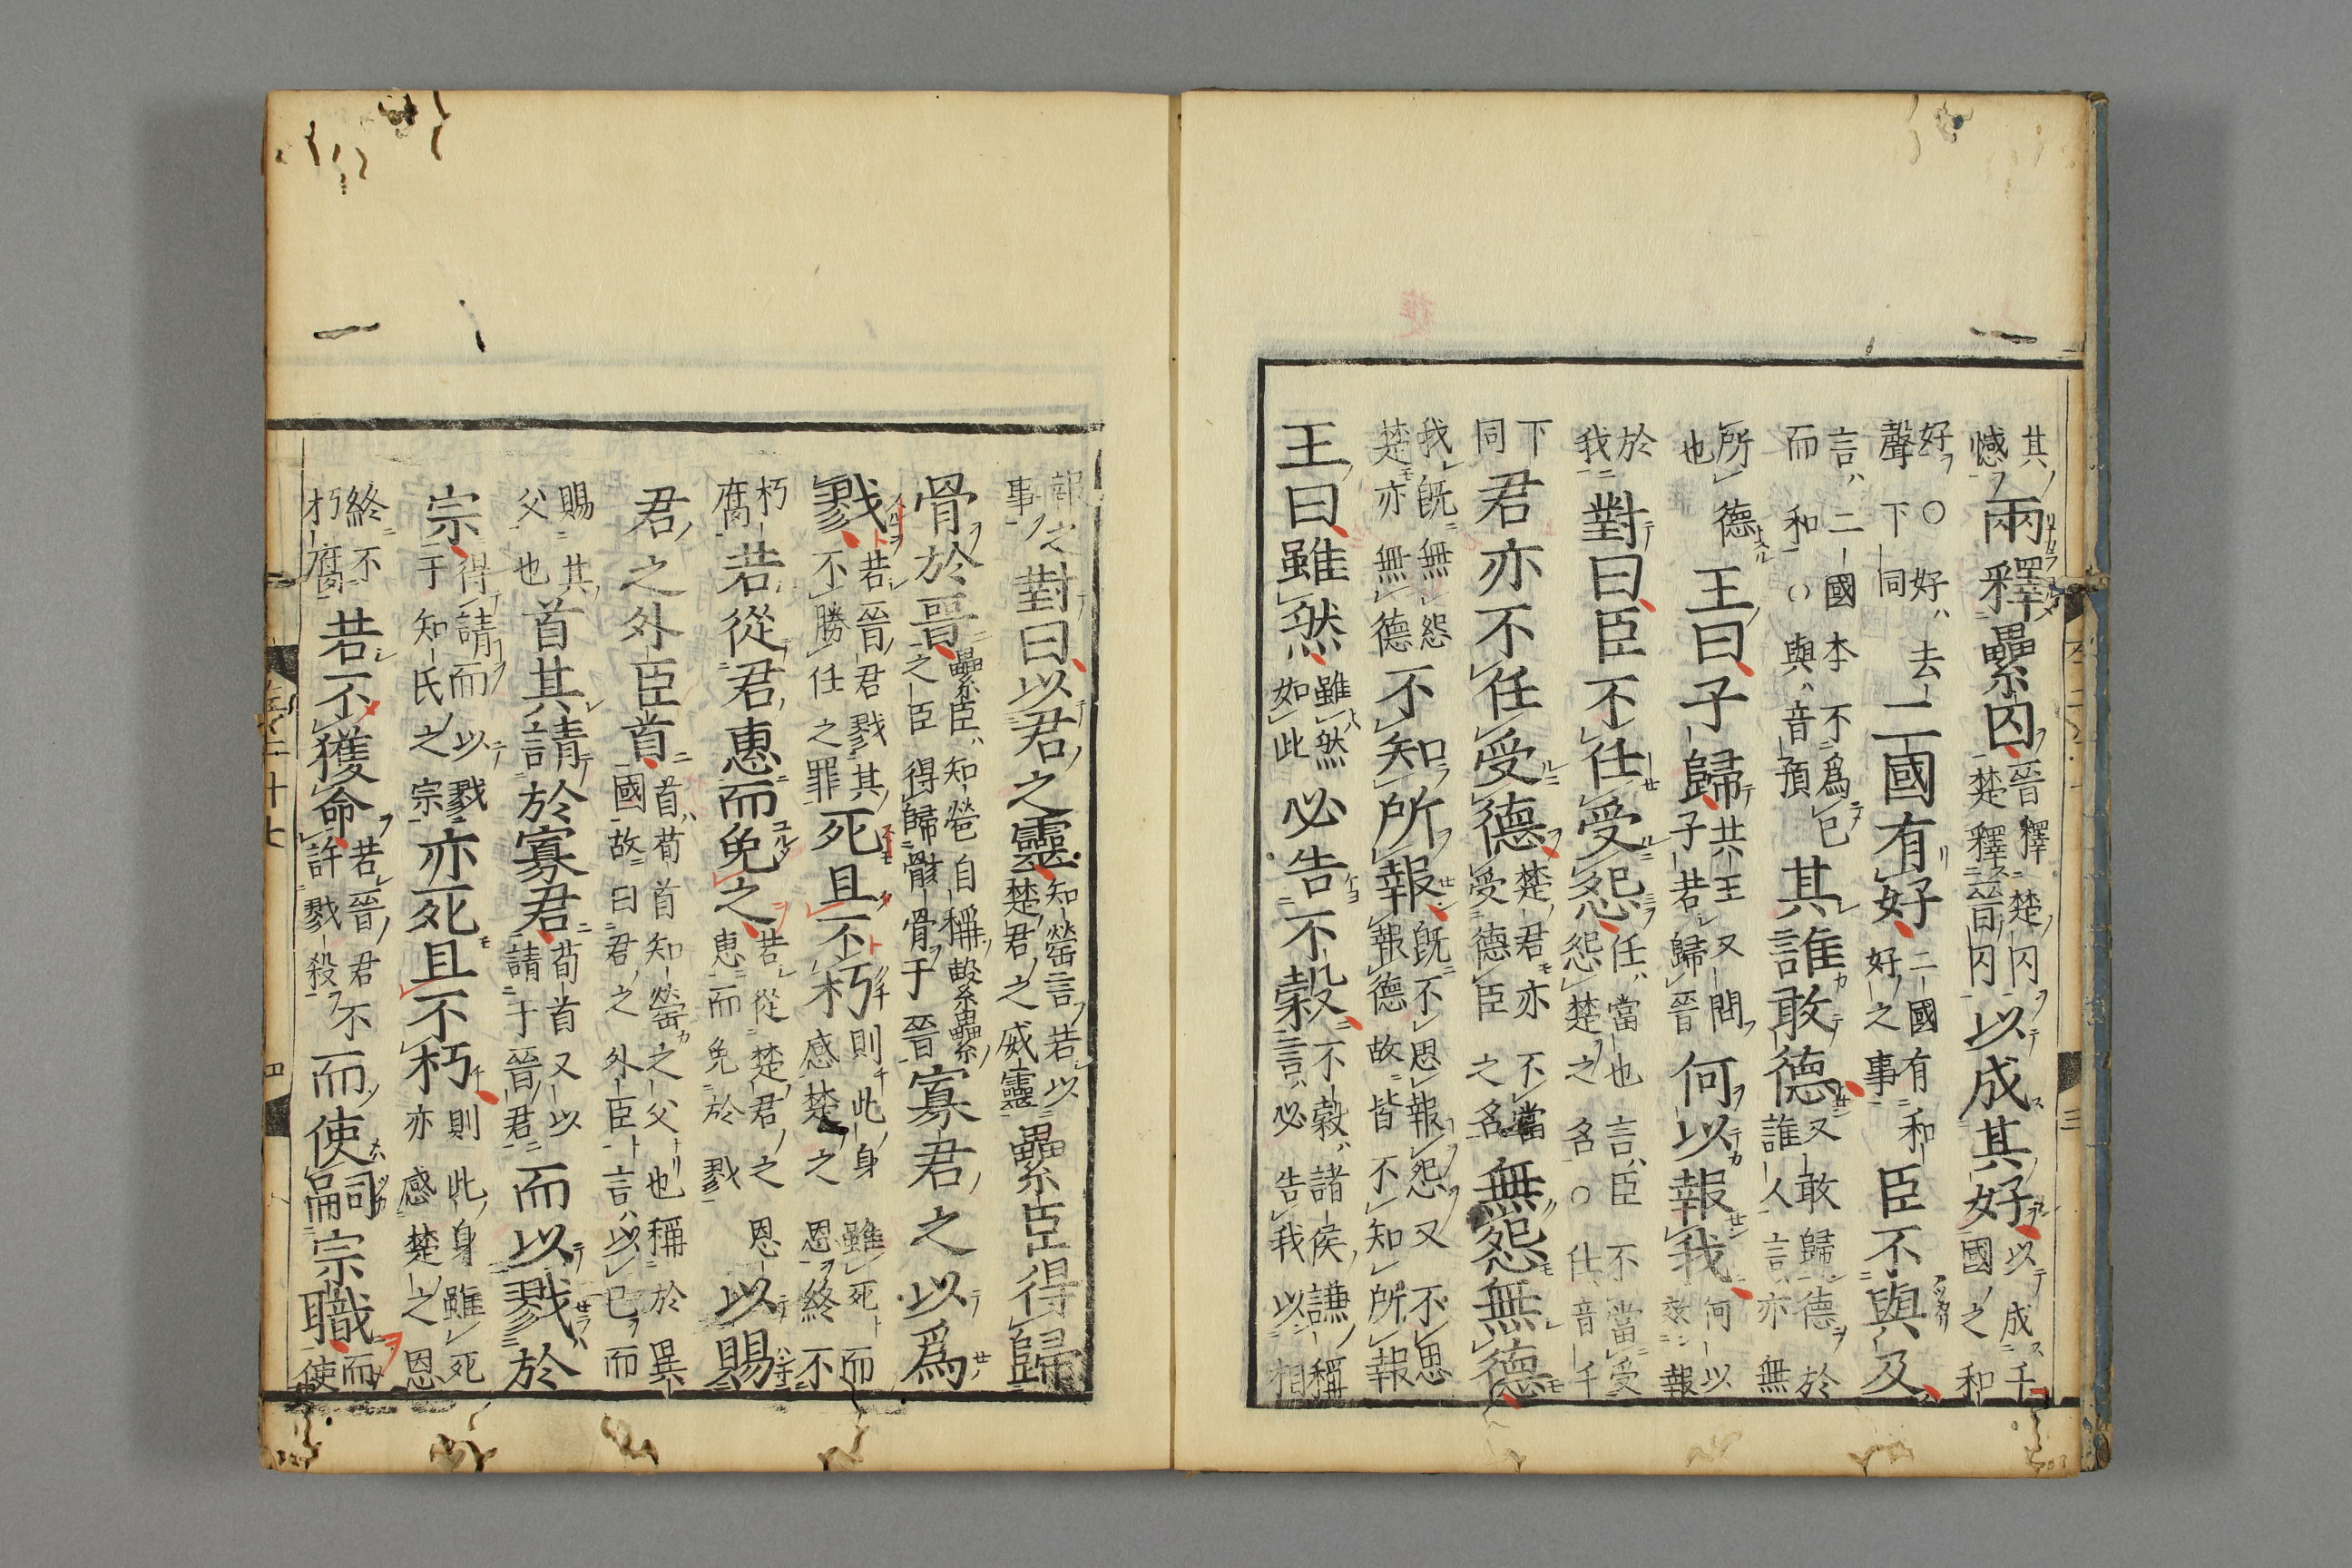 其憾兩釋纍囚晉釋楚囚楚釋晉囚以成其好以成二國之和
好○好去聲下同二國有好二國有和好之事臣不與及
言二國本不爲已而和○與音預其誰敢德又敢歸德於誰人言亦無
所德也王曰子歸共王又問子若歸晉何以報我何以報
於我對曰臣不任受怨任當也言臣不當受怨楚之名○任音
下同君亦不任受德楚君亦不當受德臣之名無怨無德
我既無怨楚亦無德不知所報既不思報怨又不思報德故皆不知所報
王曰雖然雖然如此必告不穀不穀諸侯謙稱言必告我以相
報之事對曰以君之靈知罃言若以楚君之威靈纍臣得歸
骨於晉纍臣知罃自稱繫纍之臣得歸骸骨于晉寡君之以爲
戮若晉君戮其不勝任之罪死且不朽則此身雖死而感楚之恩終不
朽腐若從君惠而免之若從楚君之恩惠而免於戮以賜
君之外臣首首荀首知罃之父也稱於異國故曰君之外臣言以已而
賜其父也首其請於寡君荀首又以請于晉君而以戮於
宗得請而以戮于知氏之宗亦死且不朽則此身雖死亦感楚之恩
終不朽腐若不獲命若晉君不許戮殺而使嗣宗職而使